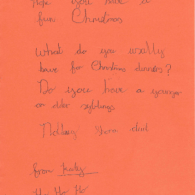 Hope you have a
fun Christmas
What do you really
have for Christmas dinner?
Do you have a younger
or older
from
Ho Ho Ho